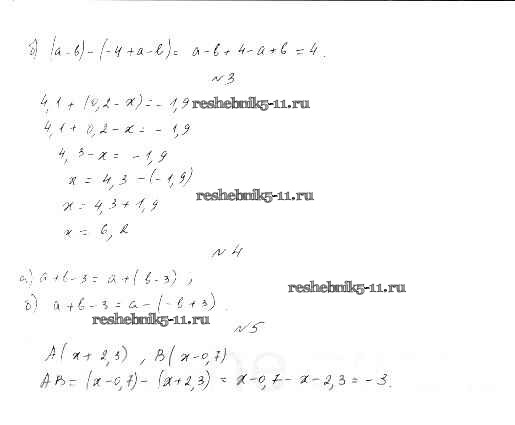 б) (a-b)-(-4+a-b)= a-b+4-a+b=4.
№3
4,1+(0,2-x)=-1,9
reshebnik5-11.ru
4,1+0,2-x=-1,9
4,3-x=-1,9
x=4,3-(-1,9)
reshebnik5-11.ru
x=4,3+1,9
x=6,2
№4
а) a+b-3=a+(b-3),
reshebnik5-11.ru
б) a+b-3=a-(-b+3).
reshebnik5-11.ru
№5
A(x+2,3), B(x-0,7)
AB=(x-0,7)-(x+2,3)=x-0,7-x-2,3=-3.